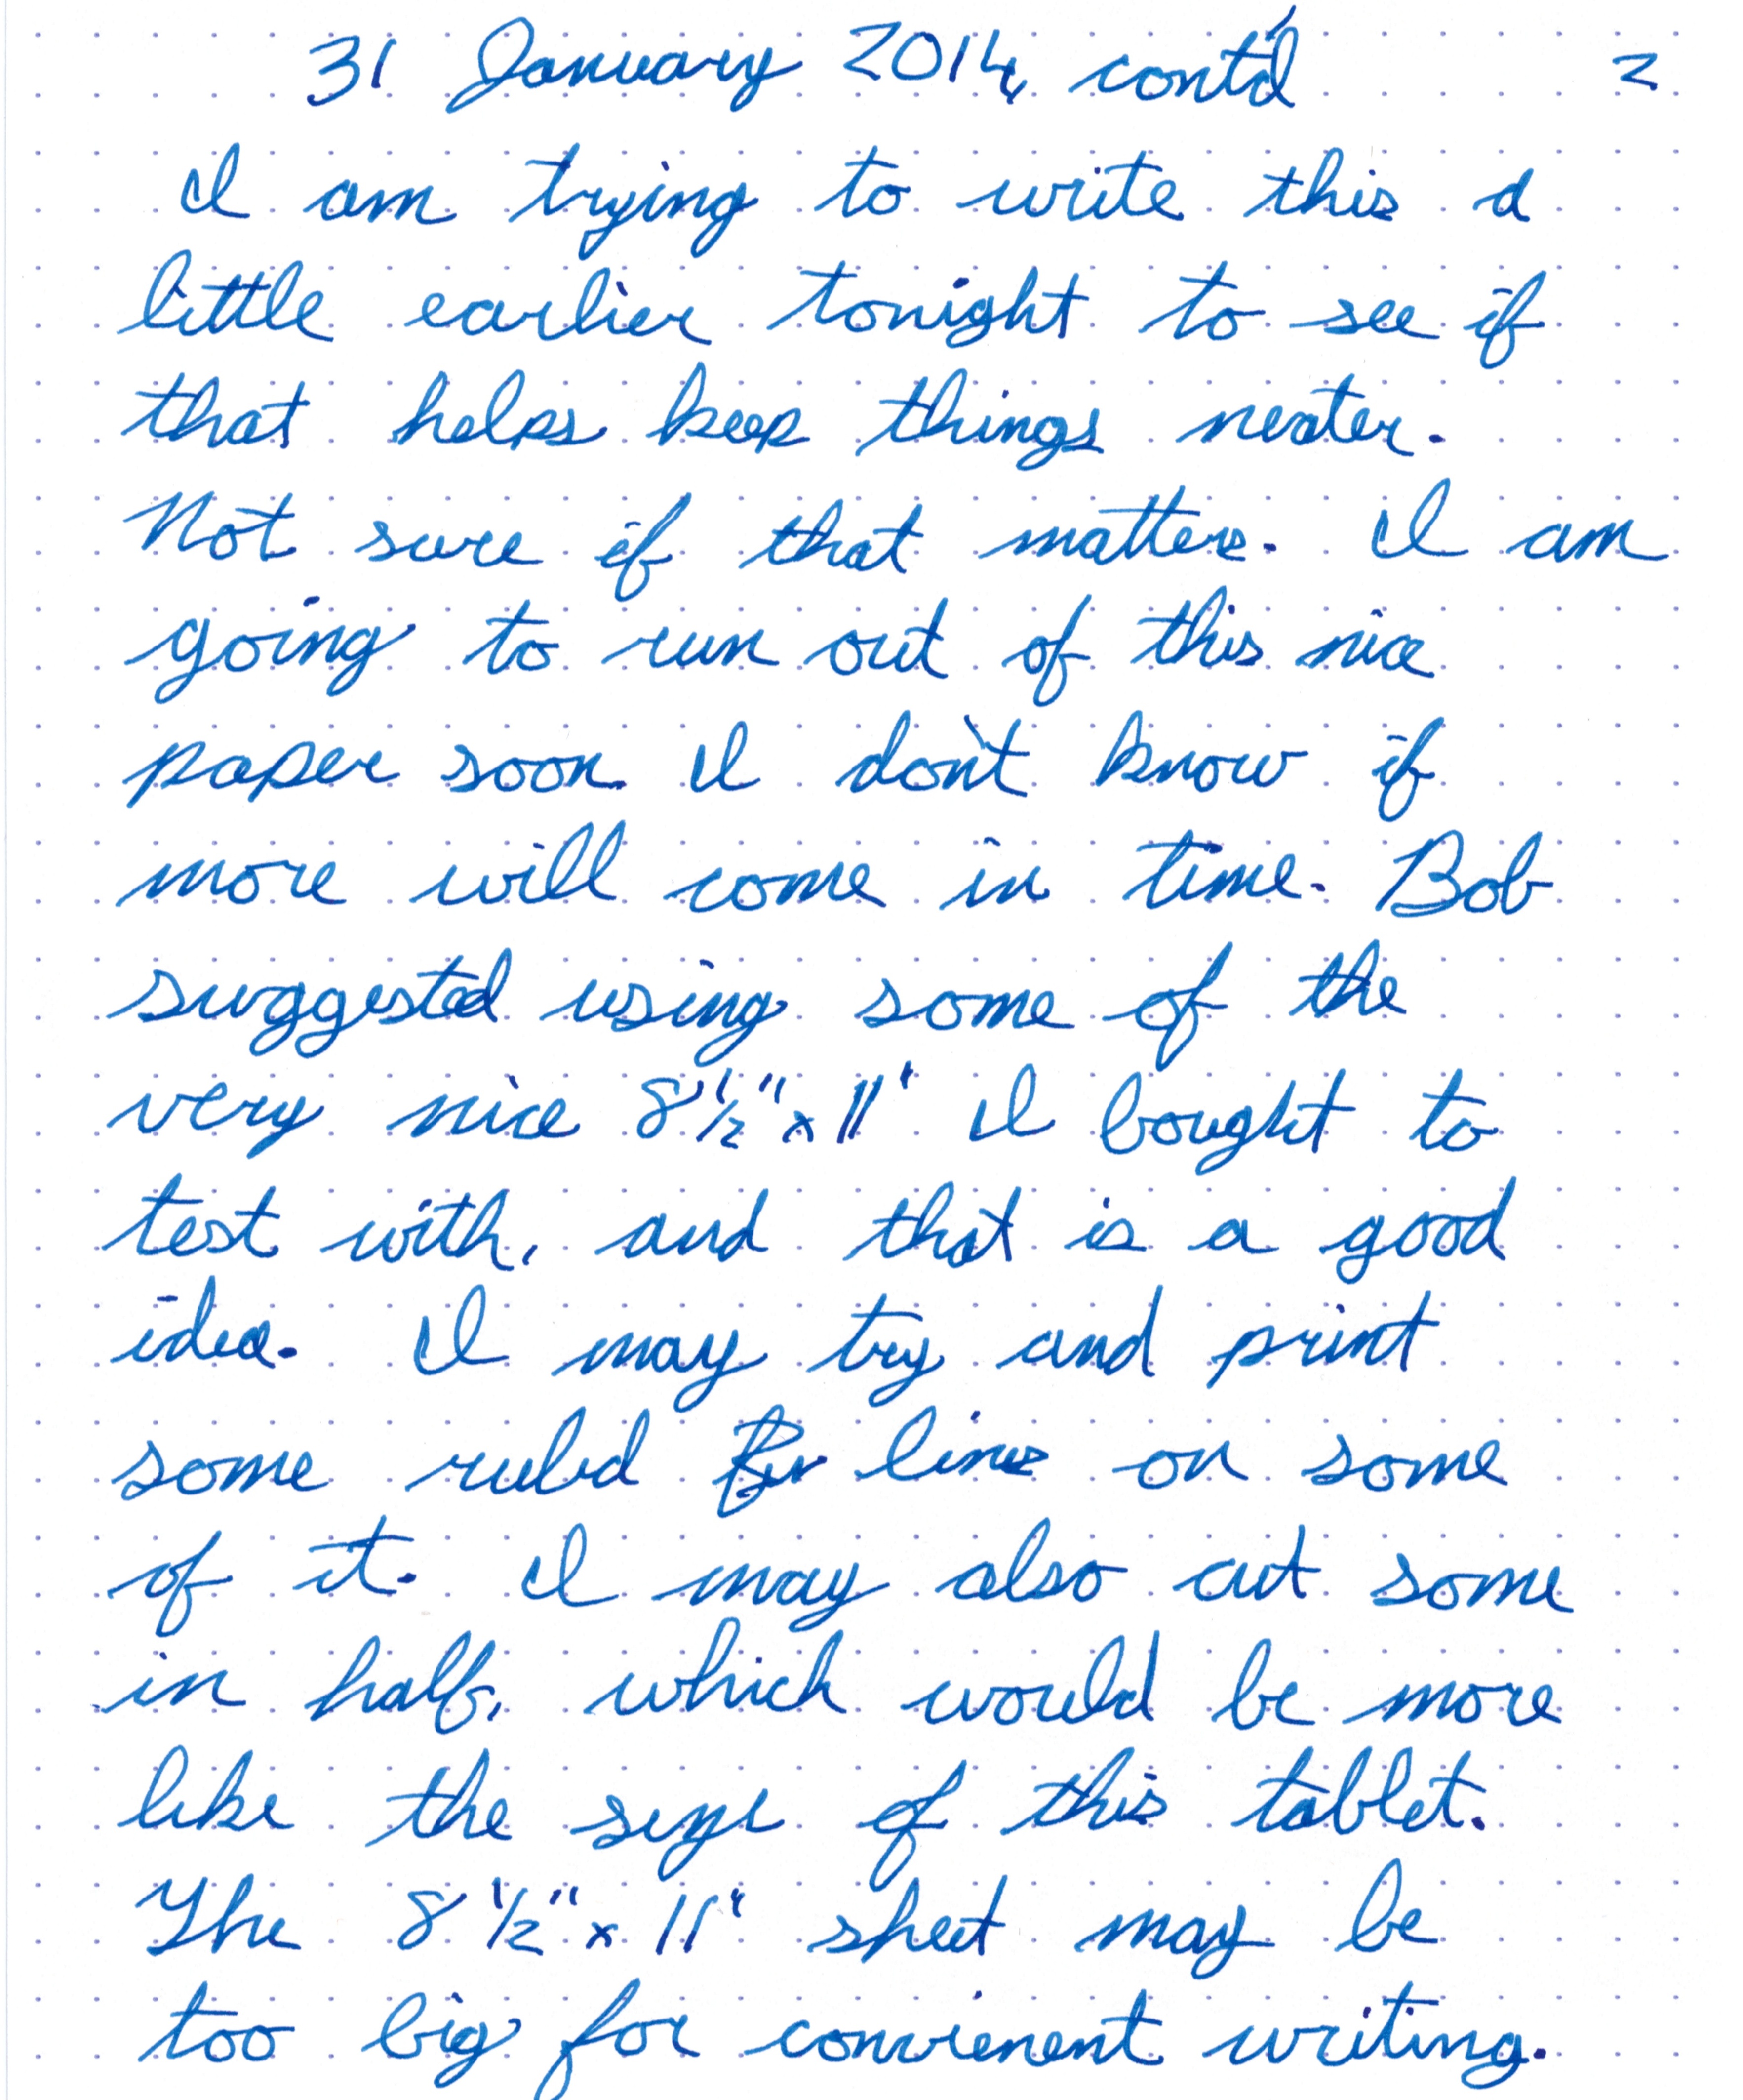 31 January 2014, cont'd 2
I am trying to write this a
little earlier tonight to see if
that helps keep things neater.
Not sure if that matters. I am
going to run out of this nice
paper soon. I don't know if
more will come in time. Bob
suggested using some of the
very nice 8 1/2" x 11" I bought to
test with, and that is a good
idea. I may try and print
some ruled lines on some
of it. I may also cut some
in half, which would be more
like the size of this tablet.
The 8 1/2" x 11" sheet may be
too big for convienent writing.